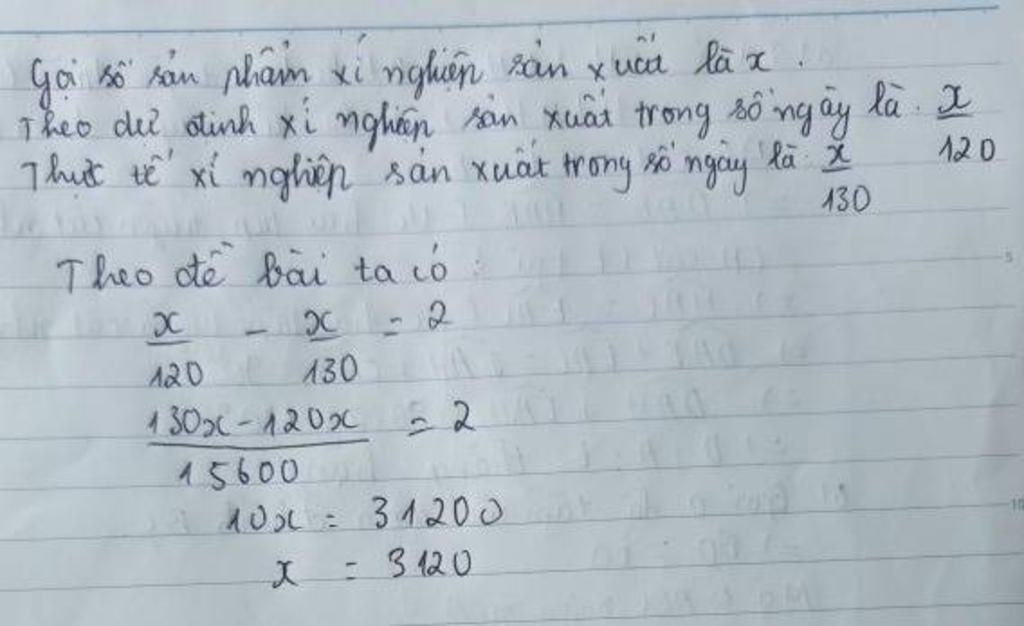 Gọi số sản phẩm xí nghiệp sản xuất là x.
Theo dự định xí nghiệp sản xuất trong số ngày là x/120
Thực tế xí nghiệp sản xuất trong số ngày là x/130
Theo đề bài ta có:
x/120 - x/130 = 2
(130x - 120x)/15600 = 2
10x = 31200
x = 3120